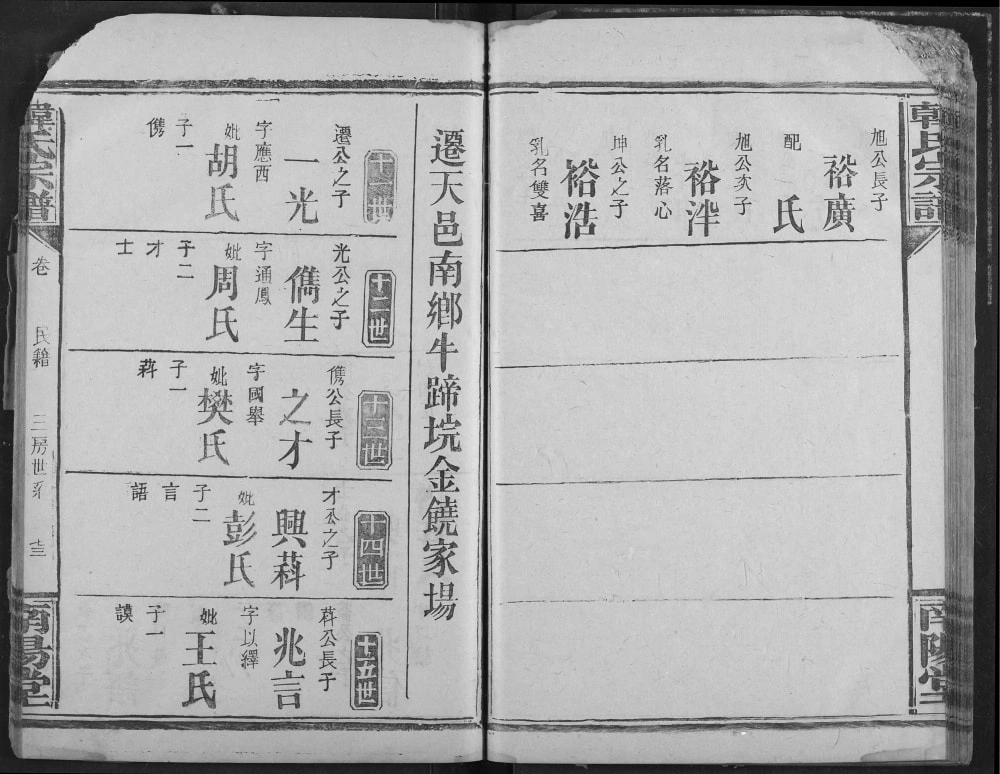 韓氏宗譜
南陽堂
旭公長子
裕廣
配
氏
旭公次子
裕泮
乳名落心
坤公之子
裕浩
乳名雙喜
遷天邑南鄉牛蹄垸金饒家場
十一世
遷公之子
一光
字應西
妣
胡氏
子一
儁
十二世
光公之子
儁生
字通鳳
妣
周氏
子二
才
士
十三世
儁公長子
之才
字國舉
妣
樊氏
子一
十四世
才公之子
子二
妣
彭氏
言
語
十五世
兆言
字以繹
妣
王氏
子一
謨
韓氏宗譜
卷
民籍
三房世系
南陽堂